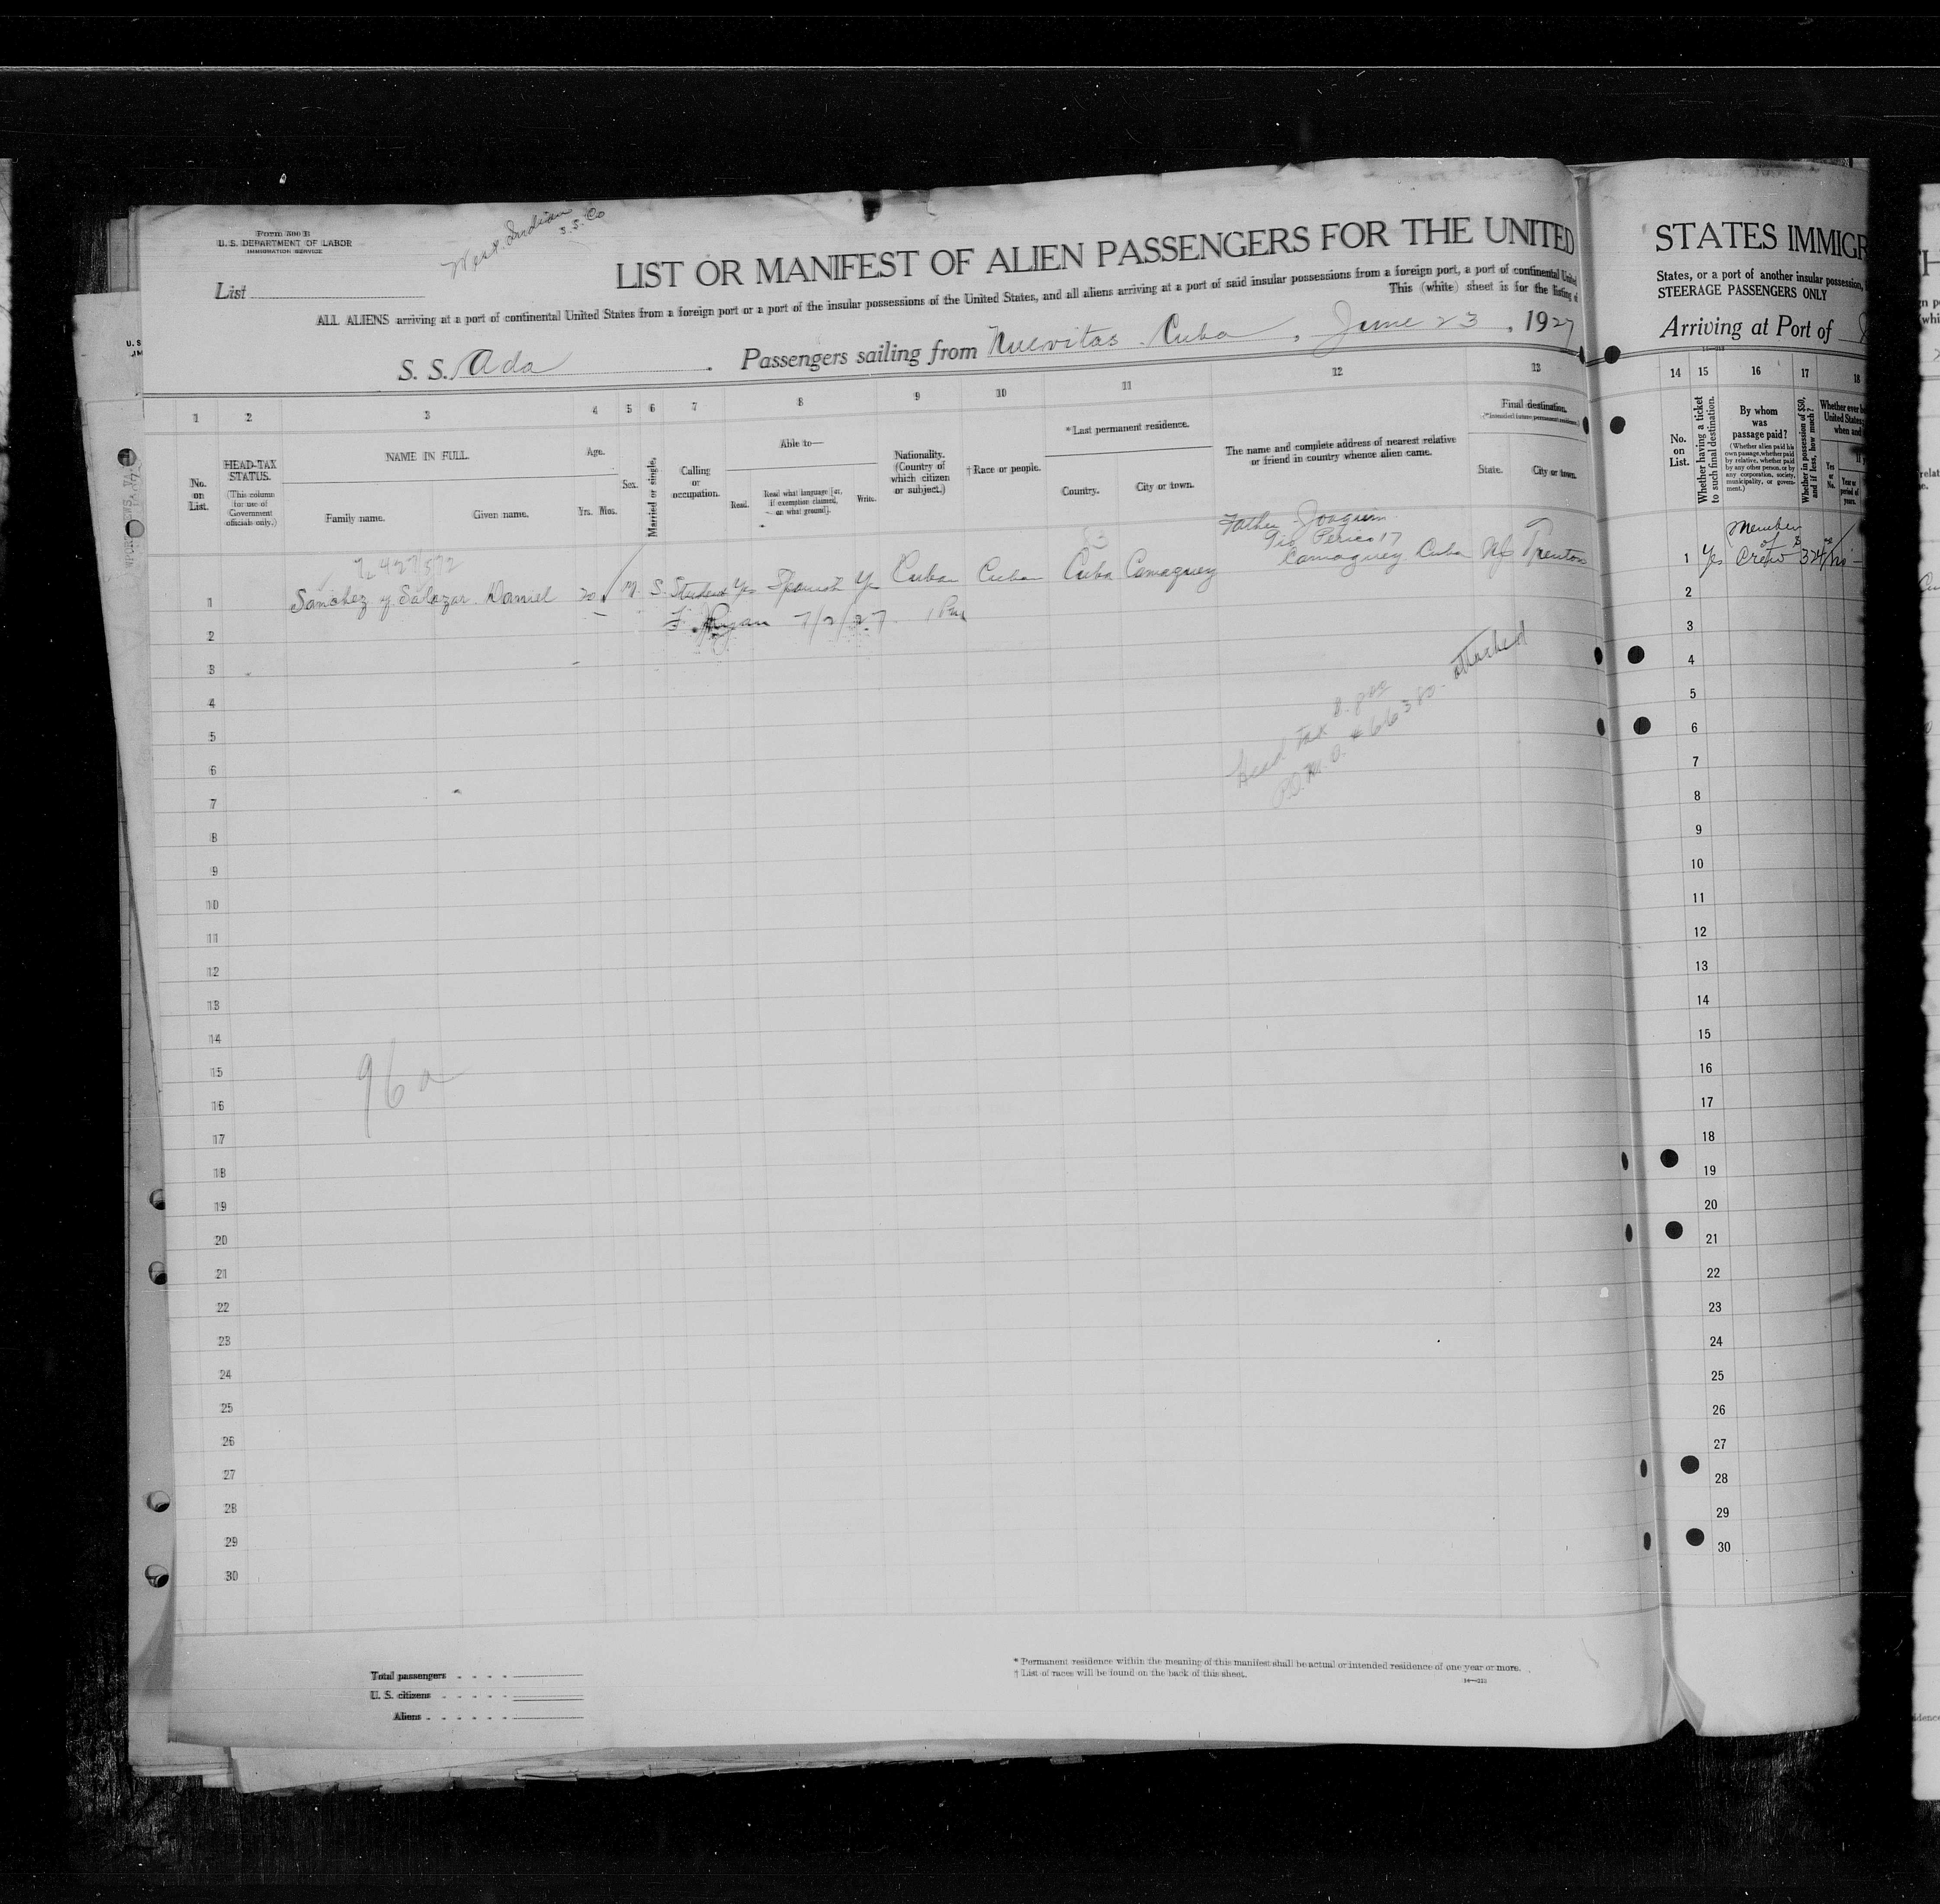 Form 500 B
U. S. DEPARTMENT OF LABOR
IMMIGRATION SERVICE
West Indian
S. S. Co
List
LIST OR MANIFEST OF ALIEN PASSENGERS FOR THE UNITED
ALL ALIENS arriving at a port of continental United States from a foreign port or a port of the insular possessions of the United States, and all aliens arriving at a port of said insular possessions from a foreign port, a port of continental United
This (white) sheet is for the listing of
S. S. Ada . Passengers sailing from Nuevitas Cuba , June 23 , 1927
1 2 3 4 5 6 7 8 9 10 11 12 13
No. on List.
HEAD-TAX STATUS.
(This column for use of Government officials only.)
NAME IN FULL
Family name. Given name.
Age.
Yrs. Mos.
Sex.
Married or single.
Calling or occupation.
Able to—
Read. Read what language [or, if exemption claimed, on what ground]. Write.
Nationality. (Country of which citizen or subject.)
† Race or people.
* Last permanent residence.
Country. City or town.
The name and complete address of nearest relative or friend in country whence alien came.
Final destination.
(*Intended future permanent residence.)
State. City or town.
Father Joaquin
Perico 17
Camaguey Cuba
1 Sanchez y Salazar Daniel 20 M S Student Yes Spanish Yes Cuba Cuban Cuba Camaguey NJ Trenton
2 Ryan 7/2/27
3
4
5
6
7
8
9
10
11
12
13
14
15
16
17
18
19
20
21
22
23
24
25
26
27
28
29
30
Head Tax
attached
96a
Total passengers
U. S. citizens
Aliens
* Permanent residence within the meaning of this manifest shall be actual or intended residence of one year or more.
† List of races will be found on the back of this sheet.
STATES IMMIGR
States, or a port of another insular possession,
STEERAGE PASSENGERS ONLY
Arriving at Port of
14 15 16 17 18
No. on List.
Whether having a ticket to such final destination.
By whom was passage paid?
(Whether alien paid his own passage, whether paid by relative, whether paid by any other person, or by any corporation, society, municipality, or government.)
Whether in possession of $50, and if less, how much?
Whether ever b
United States;
when and
Yes or No.
Year or period of years.
1 Yes Member of Crew
2
3
4
5
6
7
8
9
10
11
12
13
14
15
16
17
18
19
20
21
22
23
24
25
26
27
28
29
30